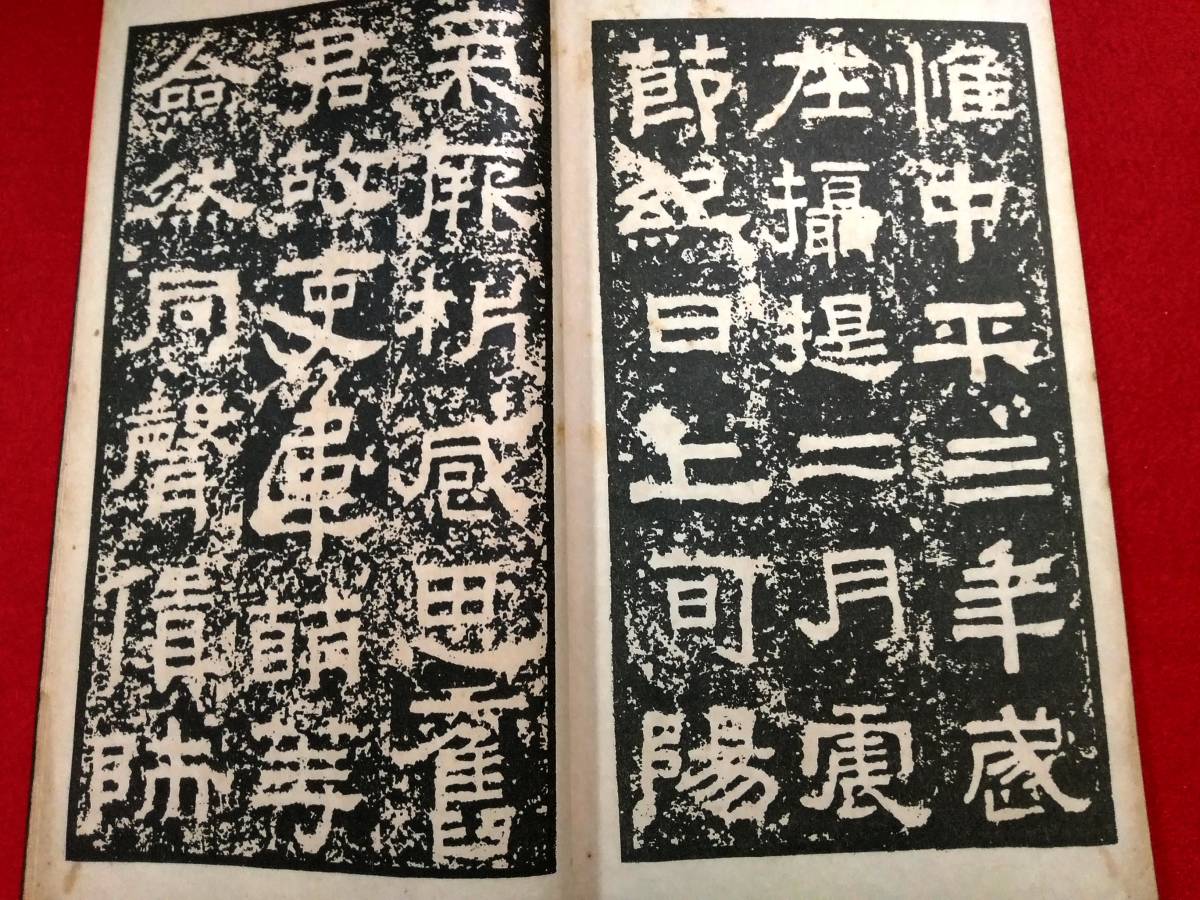 惟中平三年歲
在攝提二月震
節紀日上旬陽
氣厥枿感思舊
君故吏韋萌等
僉然同聲賃師